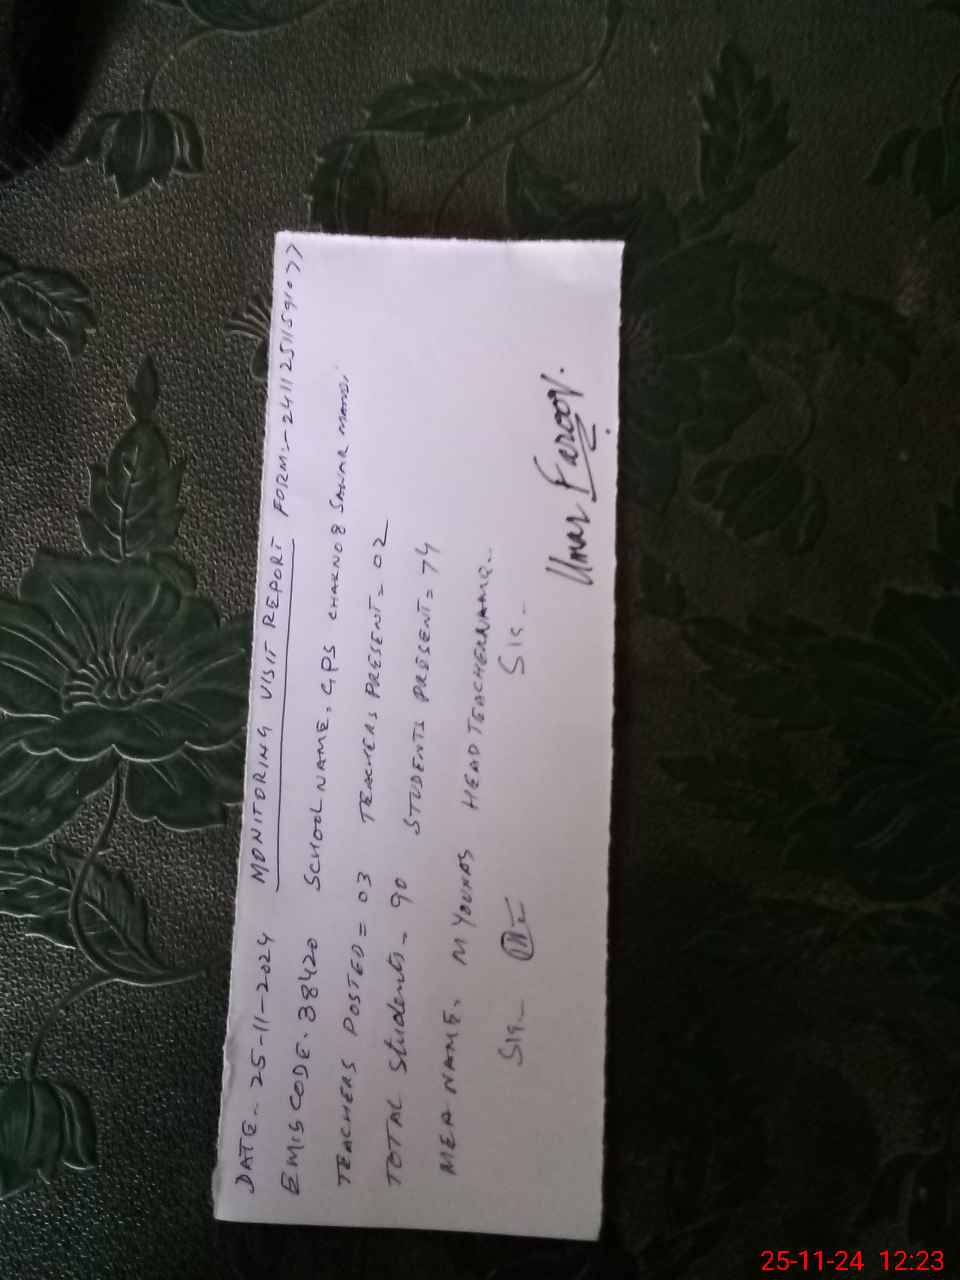 DATE - 25-11-2024 MONITORING VISIT REPORT FORM:- 24112511591077
EMIS CODE. 38420 SCHOOL NAME. GPS CHAK NO 8 SAWAR MANDI
TEACHERS POSTED = 03 TEACHERS PRESENT = 02
TOTAL Students - 90 STUDENTS PRESENT = 74
MEA NAME. M YOUNAS HEAD TEACHER NAME..
Sig.- Sig -
Umar Farooq.
25-11-24 12:23